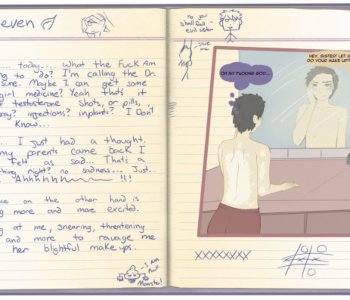 even
... today.... What the Fuck Am
ng to do? I'm calling the Dr.
sure. Maybe I can get some
girl medicine? Yeah thats it
testosterone shots, or pills,
? injections? implants? I Don't
Know...
... I just had a thought.
my parents came back I
felt as sad... Thats a
thing right? no sadness... Just...
Ahhhhhh !!!
on the other hand is
ng more and more excited.
ng at me, snearing, threatening
and more to ravage me
her blightful makeups.
I Am Monster!
no you shall fall evil sister
save me
OH MY FUCKING GOD...
HEY, SISTER! LET M
DO YOUR MAKE UP
XXXXXXXX